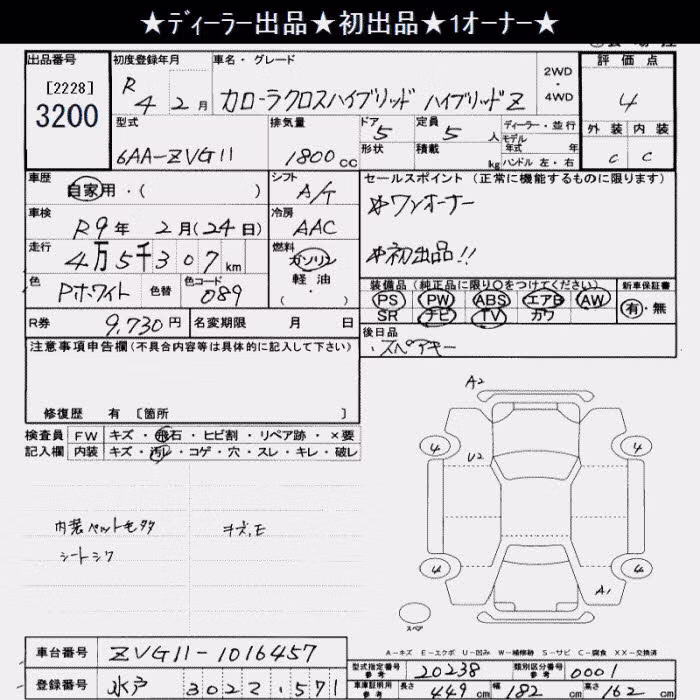 ★ディーラー出品★初出品★1オーナー★
出品番号 初度登録年月 車名・グレード 2WD・4WD 評価点
[2228]
3200
R4 2月 カローラクロスハイブリッド ハイブリッドZ 4
型式 排気量 ドア 定員 ディーラー・並行 外装 内装
6AA-ZVG11 1800cc 5 5人 モデル年式 年 C C
形状 積載 kg ハンドル 左・右
車歴 シフト セールスポイント(正常に機能するものに限ります)
自家用・( ) A/T ☆ワンオーナー
車検 冷房
R9年 2月(24日) AAC ☆初出品!!
走行 燃料
4万5千307km ガソリン
軽油
・( )
色 色替 色コード
Pホワイト 089
装備品(純正品に限り○をつけてください) 新車保証書
PS PW ABS エアB AW 有・無
SR ナビ TV カワ
R券 9,730円 名変期限 月 日
後日品
・スペアキー
注意事項申告欄(不具合内容等は具体的に記入して下さい)
修復歴 有 [箇所 ]
検査員 FW キズ・飛石・ヒビ割・リペア跡・×要
記入欄 内装 キズ・汚レ・コゲ・穴・スレ・キレ・破レ
A2
4 4
U2
4 4
A1
スペア
内装ペットモ タタ キズ,E
シートシワ
A-キズ E-エクボ U-凹み W-補修跡 S-サビ C-腐食 XX-交換済
車台番号 ZVG11-1016457
型式指定番号 参考 20238 類別区分番号 参考 0001
登録番号 水戸 302 2・571
車庫証明用 参考 長さ 449cm 幅 182cm 高さ 162cm